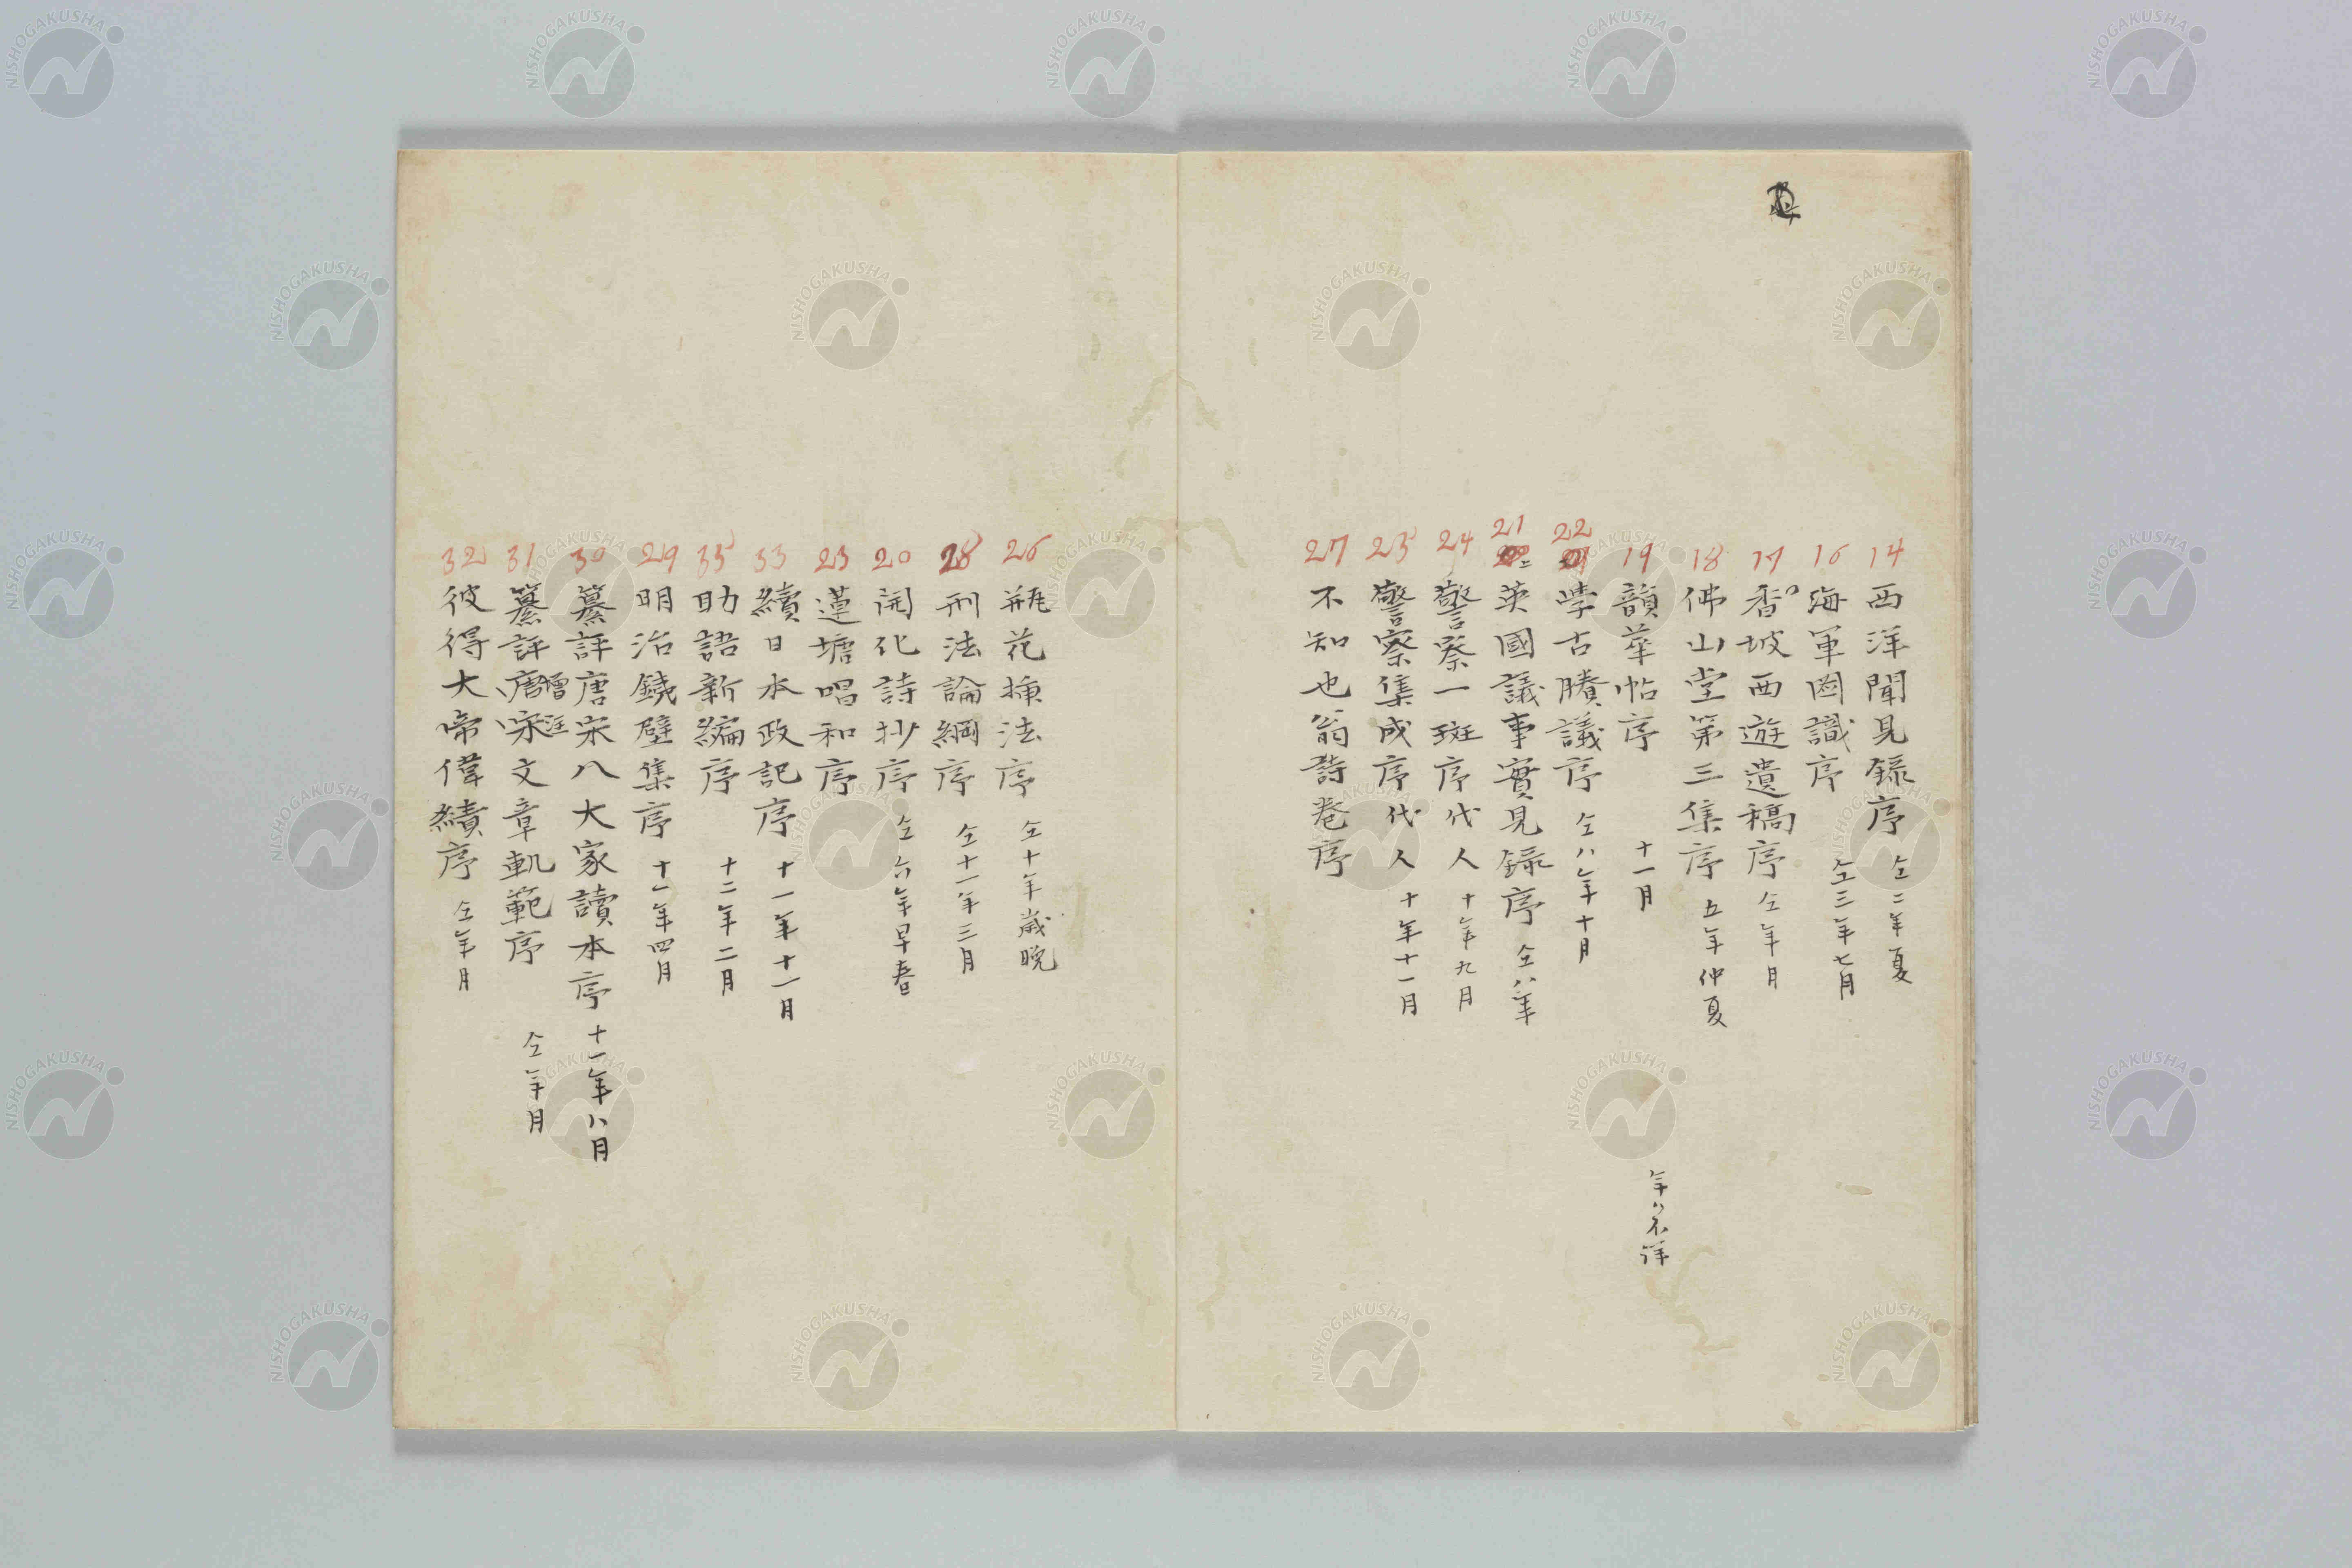 14 西洋聞見録序 仝二年夏
16 海軍圖識序 仝三年七月
17 香坡西遊遺稿序 仝年月
18 佛山堂第三集序 五年仲夏
19 韻華帖序 十一月 年八不詳
22 学古賸議序 仝八年十月
21 英國議事實見録序 仝八年
24 警察一斑序代人 十年九月
25 警察集成序代人 十年十一月
27 不知也翁詩巻序
26 瓶花挿法序 仝十年歳晩
28 刑法論綱序 仝十一年三月
20 開化詩抄序 仝六年早春
23 蓮塘唱和序
33 續日本政記序 十一年十一月
35 助語新編序 十二年二月
29 明治鐃璧集序 十一年四月
30 纂評唐宋八大家讀本序 十一年八月
31 纂評唐宋増註文章軌範序 仝年月
32 彼得大帝偉績序 仝年月
NISHOGAKUSHA